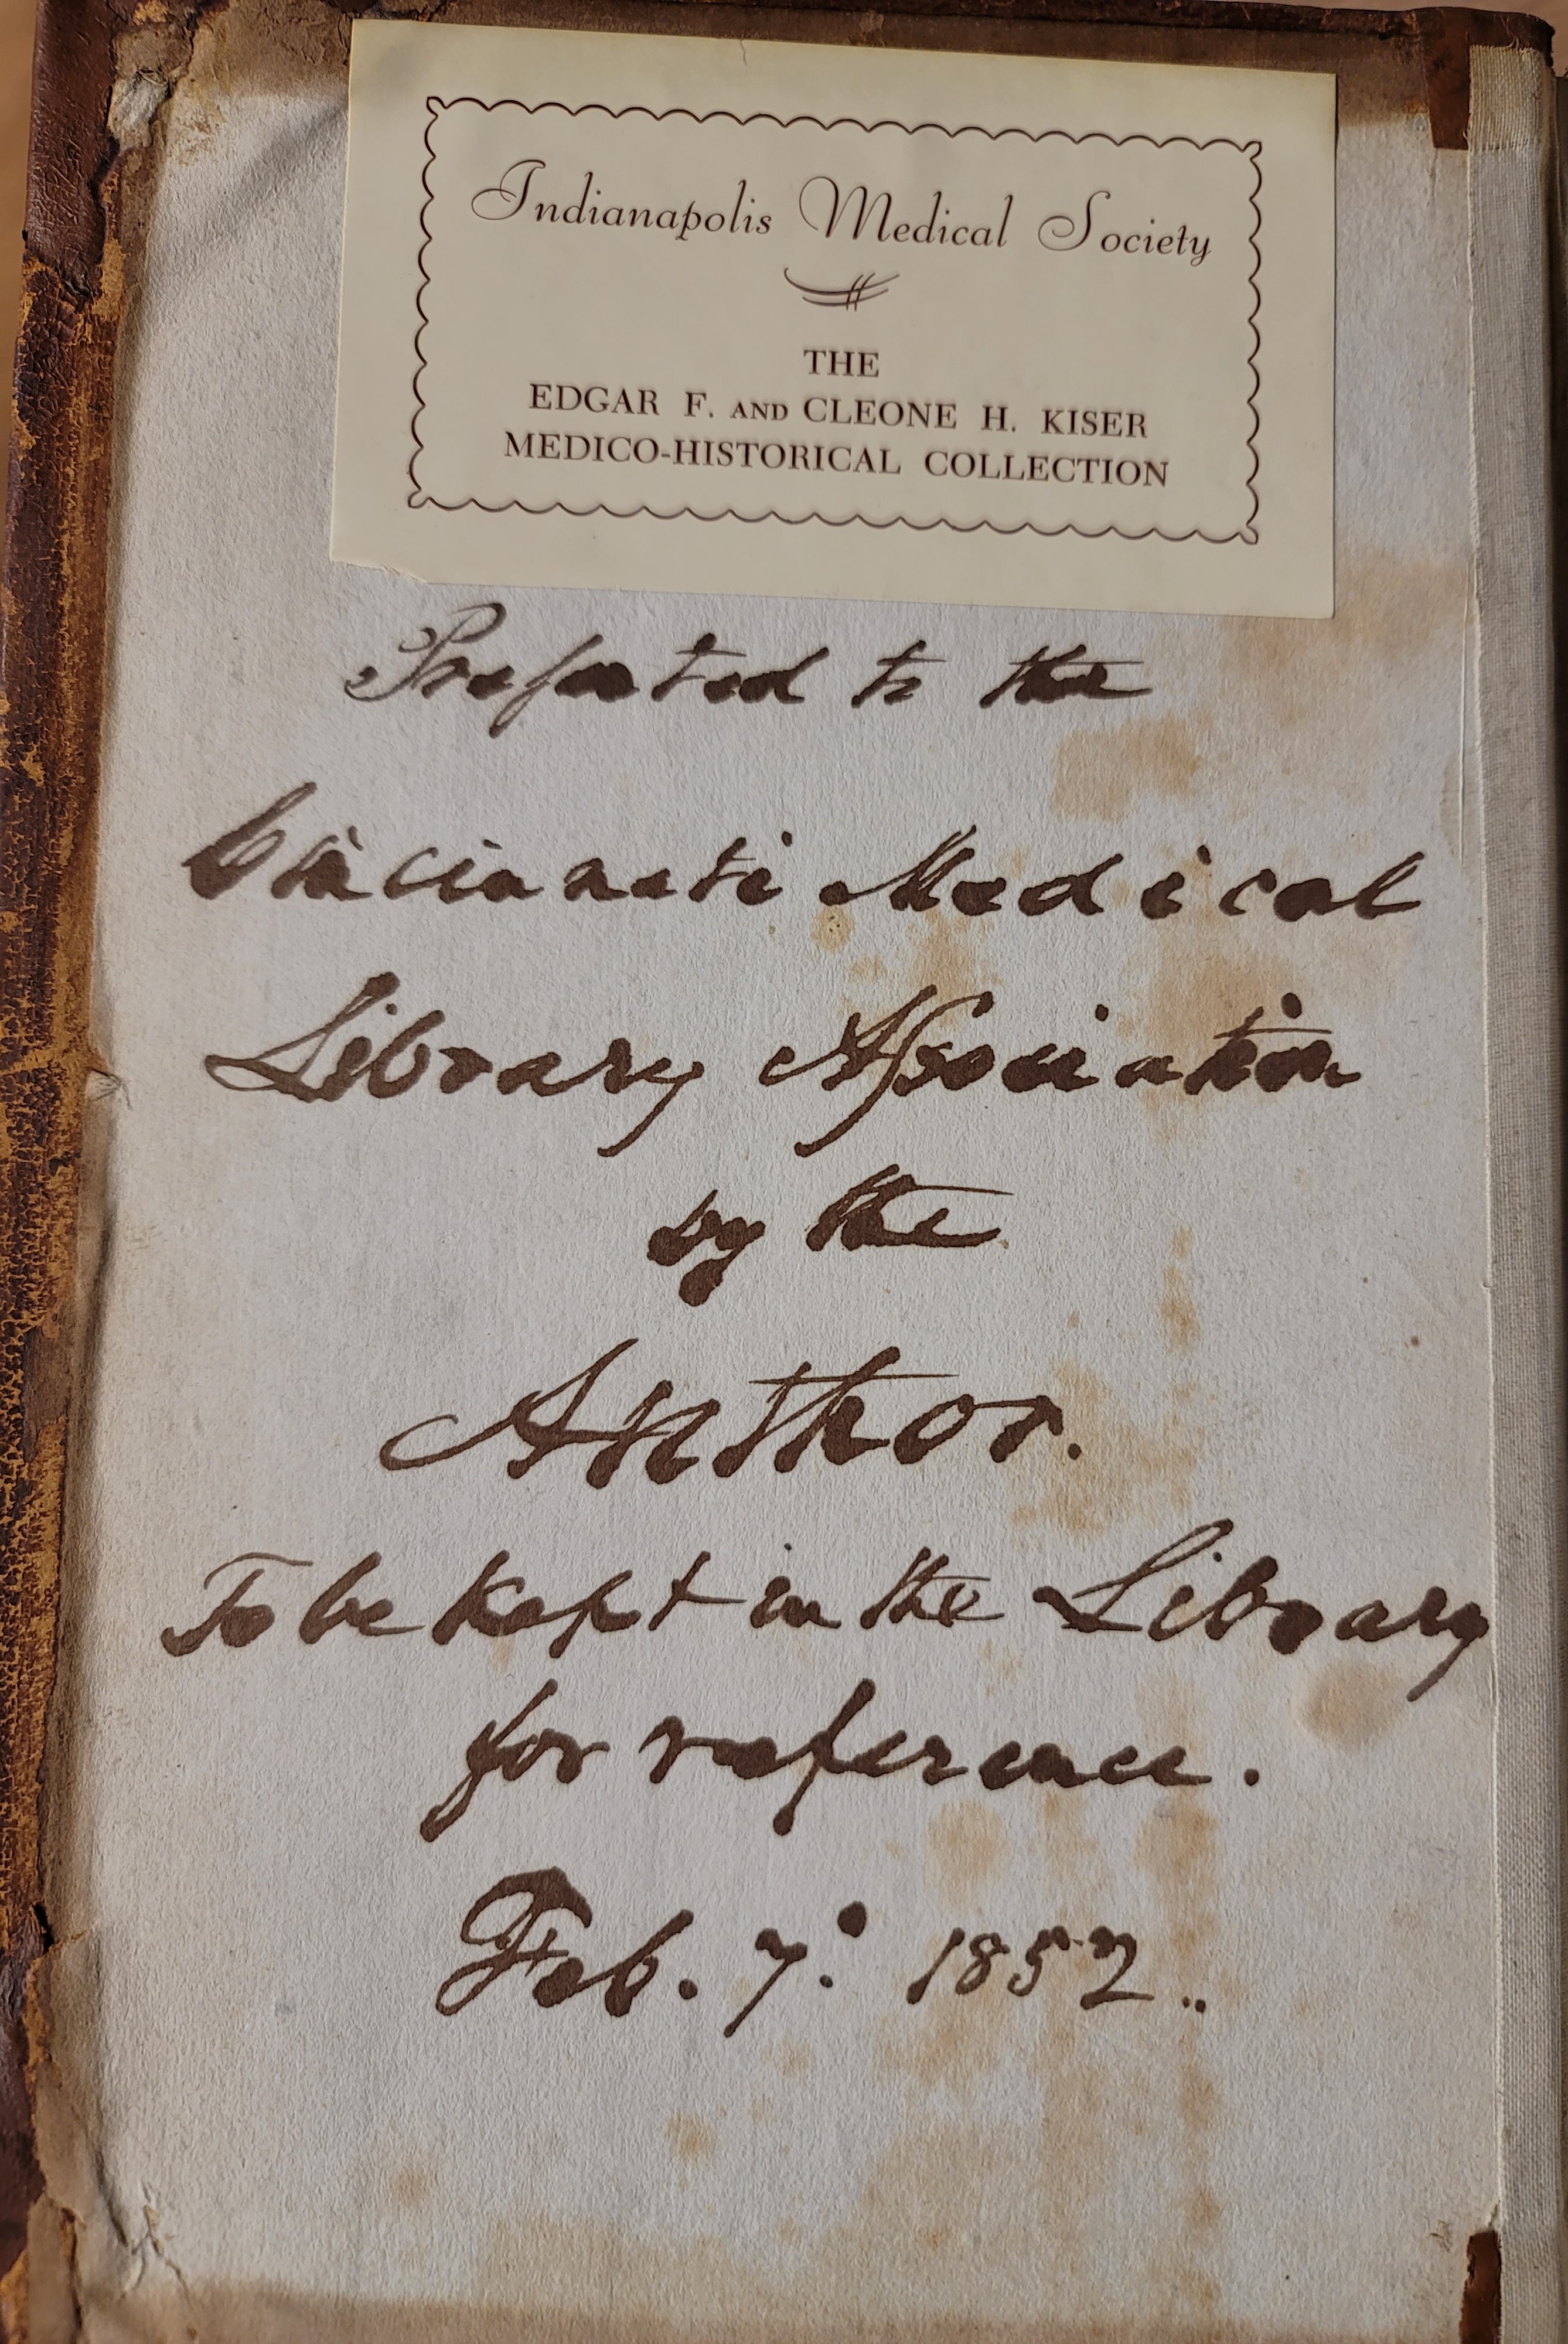 Indianapolis Medical Society
THE
EDGAR F. AND CLEONE H. KISER
MEDICO-HISTORICAL COLLECTION
Presented to the
Cincinnati Medical
Library Association
by the
Author.
To be kept in the Library
for reference.
Feb. 7. 1852.